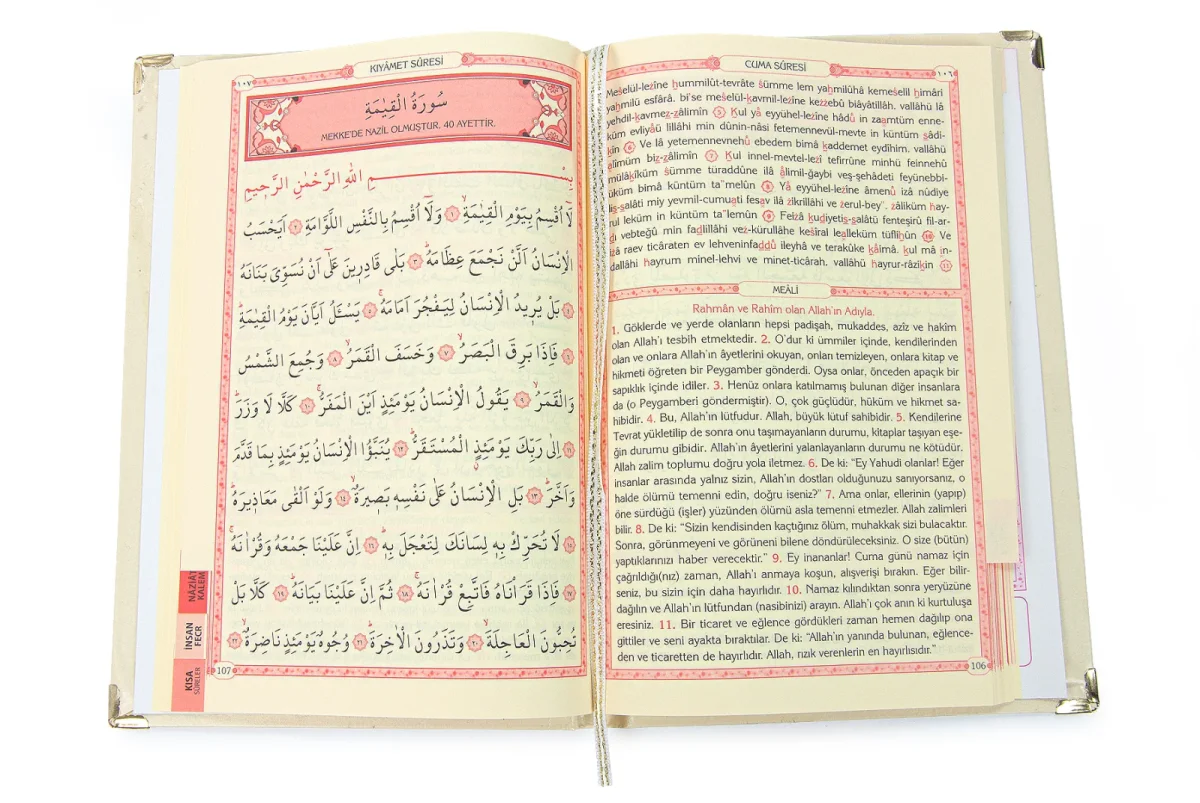 CUMA SÛRESİ
١٠٦
Meŝelül-lezîne hummilût-tevrate ŝümme lem yahmilûhâ kemeŝelil himâri
yahmilü esfârâ. bi'se meŝelül-kavmil-lezîne kezzebû biâyâtillâh. vallâhü lâ
yehdil-kavmez-zâlimîn 5 Kul yâ eyyühel-lezîne hâdû in zaamtüm enne-
küm evliyâü lillâhi min dûnin-nâsi fetemennevül-mevte in küntüm sâdi-
kîn 6 Ve lâ yetemennevnehû ebedem bimâ kaddemet eydîhim. vallâhü
alîmüm biz-zâlimîn 7 Kul innel-mevtel-lezî tefirrûne minhü feinnehû
mülâkîküm ŝümme türaddûne ilâ âlimil-ğaybi veş-şehâdeti feyünebbi-
üküm bimâ küntüm ta"melûn 8 Yâ eyyühel-lezîne âmenû izâ nûdiye
lis-salâti miy yevmil-cumuati fesav ilâ zikrillâhi ve zerul-bey". zâliküm hay-
rul leküm in küntüm ta"lemûn 9 Feizâ kudiyetis-salâtü fenteşirû fil-ar-
dı vebteğû min fadlillâhi vez-kürullâhe keŝîral lealleküm tüflihûn 10 Ve
izâ raev ticâraten ev lehveninfaddû ileyhâ ve terakûke kâimâ. kul mâ in-
dallâhi hayrum minel-lehvi ve minet-ticârah. vallâhü hayrur-râzikîn 11
MEÂLİ
Rahmân ve Rahîm olan Allah'ın Adıyla.
1. Göklerde ve yerde olanların hepsi padişah, mukaddes, azîz ve hakîm
olan Allah'ı tesbih etmektedir. 2. O'dur ki ümmiler içinde, kendilerinden
olan ve onlara Allah'ın âyetlerini okuyan, onları temizleyen, onlara kitap ve
hikmeti öğreten bir Peygamber gönderdi. Oysa onlar, önceden apaçık bir
sapıklık içinde idiler. 3. Henüz onlara katılmamış bulunan diğer insanlara
da (o Peygamberi göndermiştir). O, çok güçlüdür, hüküm ve hikmet sa-
hibidir. 4. Bu, Allah'ın lütfudur. Allah, büyük lütuf sahibidir. 5. Kendilerine
Tevrat yükletilip de sonra onu taşımayanların durumu, kitaplar taşıyan eşe-
ğin durumu gibidir. Allah'ın âyetlerini yalanlayanların durumu ne kötüdür.
Allah zalim toplumu doğru yola iletmez. 6. De ki: "Ey Yahudi olanlar! Eğer
insanlar arasında yalnız sizin, Allah'ın dostları olduğunuzu sanıyorsanız, o
halde ölümü temenni edin, doğru iseniz?" 7. Ama onlar, ellerinin (yapıp)
öne sürdüğü (işler) yüzünden ölümü asla temenni etmezler. Allah zalimleri
bilir. 8. De ki: "Sizin kendisinden kaçtığınız ölüm, muhakkak sizi bulacaktır.
Sonra, görünmeyeni ve görüneni bilene döndürüleceksiniz. O size (bütün)
yaptıklarınızı haber verecektir." 9. Ey inananlar! Cuma günü namaz için
çağrıldığı(nız) zaman, Allah'ı anmaya koşun, alışverişi bırakın. Eğer bilir-
seniz, bu sizin için daha hayırlıdır. 10. Namaz kılındıktan sonra yeryüzüne
dağılın ve Allah'ın lütfundan (nasibinizi) arayın. Allah'ı çok anın ki kurtuluşa
eresiniz. 11. Bir ticaret ve eğlence gördükleri zaman hemen dağılıp ona
gittiler ve seni ayakta bıraktılar. De ki: "Allah'ın yanında bulunan, eğlence-
den ve ticaretten de hayırlıdır. Allah, rızık verenlerin en hayırlısıdır."
106
KIYÂMET SÛRESİ
١٠٧
سُورَةُ الْقِيٰمَةِ
MEKKE'DE NAZİL OLMUŞTUR, 40 AYETTİR.
بِسْــــمِ اللّٰهِ الرَّحْمٰنِ الرَّحٖيمِ
لَٓا اُقْسِمُ بِيَوْمِ الْقِيٰمَةِۙ ١ وَلَٓا اُقْسِمُ بِالنَّفْسِ اللَّوَّامَةِ ٢ اَيَحْسَبُ
الْاِنْسَانُ اَلَّنْ نَجْمَعَ عِظَامَهُۜ ٣ بَلٰى قَادِرٖينَ عَلٰٓى اَنْ نُسَوِّيَ بَنَانَهُ
٤ بَلْ يُرٖيدُ الْاِنْسَانُ لِيَفْجُرَ اَمَامَهُۚ ٥ يَسْـَٔلُ اَيَّانَ يَوْمُ الْقِيٰمَةِۜ
٦ فَاِذَا بَرِقَ الْبَصَرُۙ ٧ وَخَسَفَ الْقَمَرُۙ ٨ وَجُمِعَ الشَّمْسُ
وَالْقَمَرُۙ ٩ يَقُولُ الْاِنْسَانُ يَوْمَئِذٍ اَيْنَ الْمَفَرُّۚ ١٠ كَلَّا لَا وَزَرَۜ
١١ اِلٰى رَبِّكَ يَوْمَئِذٍ الْمُسْتَقَرُّۜ ١٢ يُنَبَّؤُا الْاِنْسَانُ يَوْمَئِذٍ بِمَا قَدَّمَ
وَاَخَّرَۜ ١٣ بَلِ الْاِنْسَانُ عَلٰى نَفْسِهٖ بَصٖيرَةٌۙ ١٤ وَلَوْ اَلْقٰى مَعَاذٖيرَهُۜ
١٥ لَا تُحَرِّكْ بِهٖ لِسَانَكَ لِتَعْجَلَ بِهٖۜ ١٦ اِنَّ عَلَيْنَا جَمْعَهُ وَقُرْاٰنَهُۚ
١٧ فَاِذَا قَرَاْنَاهُ فَاتَّبِعْ قُرْاٰنَهُۚ ١٨ ثُمَّ اِنَّ عَلَيْنَا بَيَانَهُۜ ١٩ كَلَّا بَلْ
تُحِبُّونَ الْعَاجِلَةَۙ ٢٠ وَتَذَرُونَ الْاٰخِرَةَۜ ٢١ وُجُوهٌ يَوْمَئِذٍ نَاضِرَةٌۙ ٢٢
107
NÂZİÂT
KALEM
İNSAN
FECR
KISA
SÛRELER